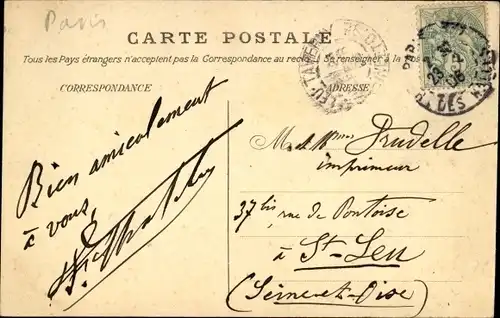 Paris
CARTE POSTALE
Tous les Pays étrangers n'acceptent pas la Correspondance au recto. Se renseigner à la pos
CORRESPONDANCE
ADRESSE
Bien amicalement
à vous,
M. & Mme Prudelle
imprimeur
37 bis rue de Pontoise
à St-Leu
(Seine-et-Oise)